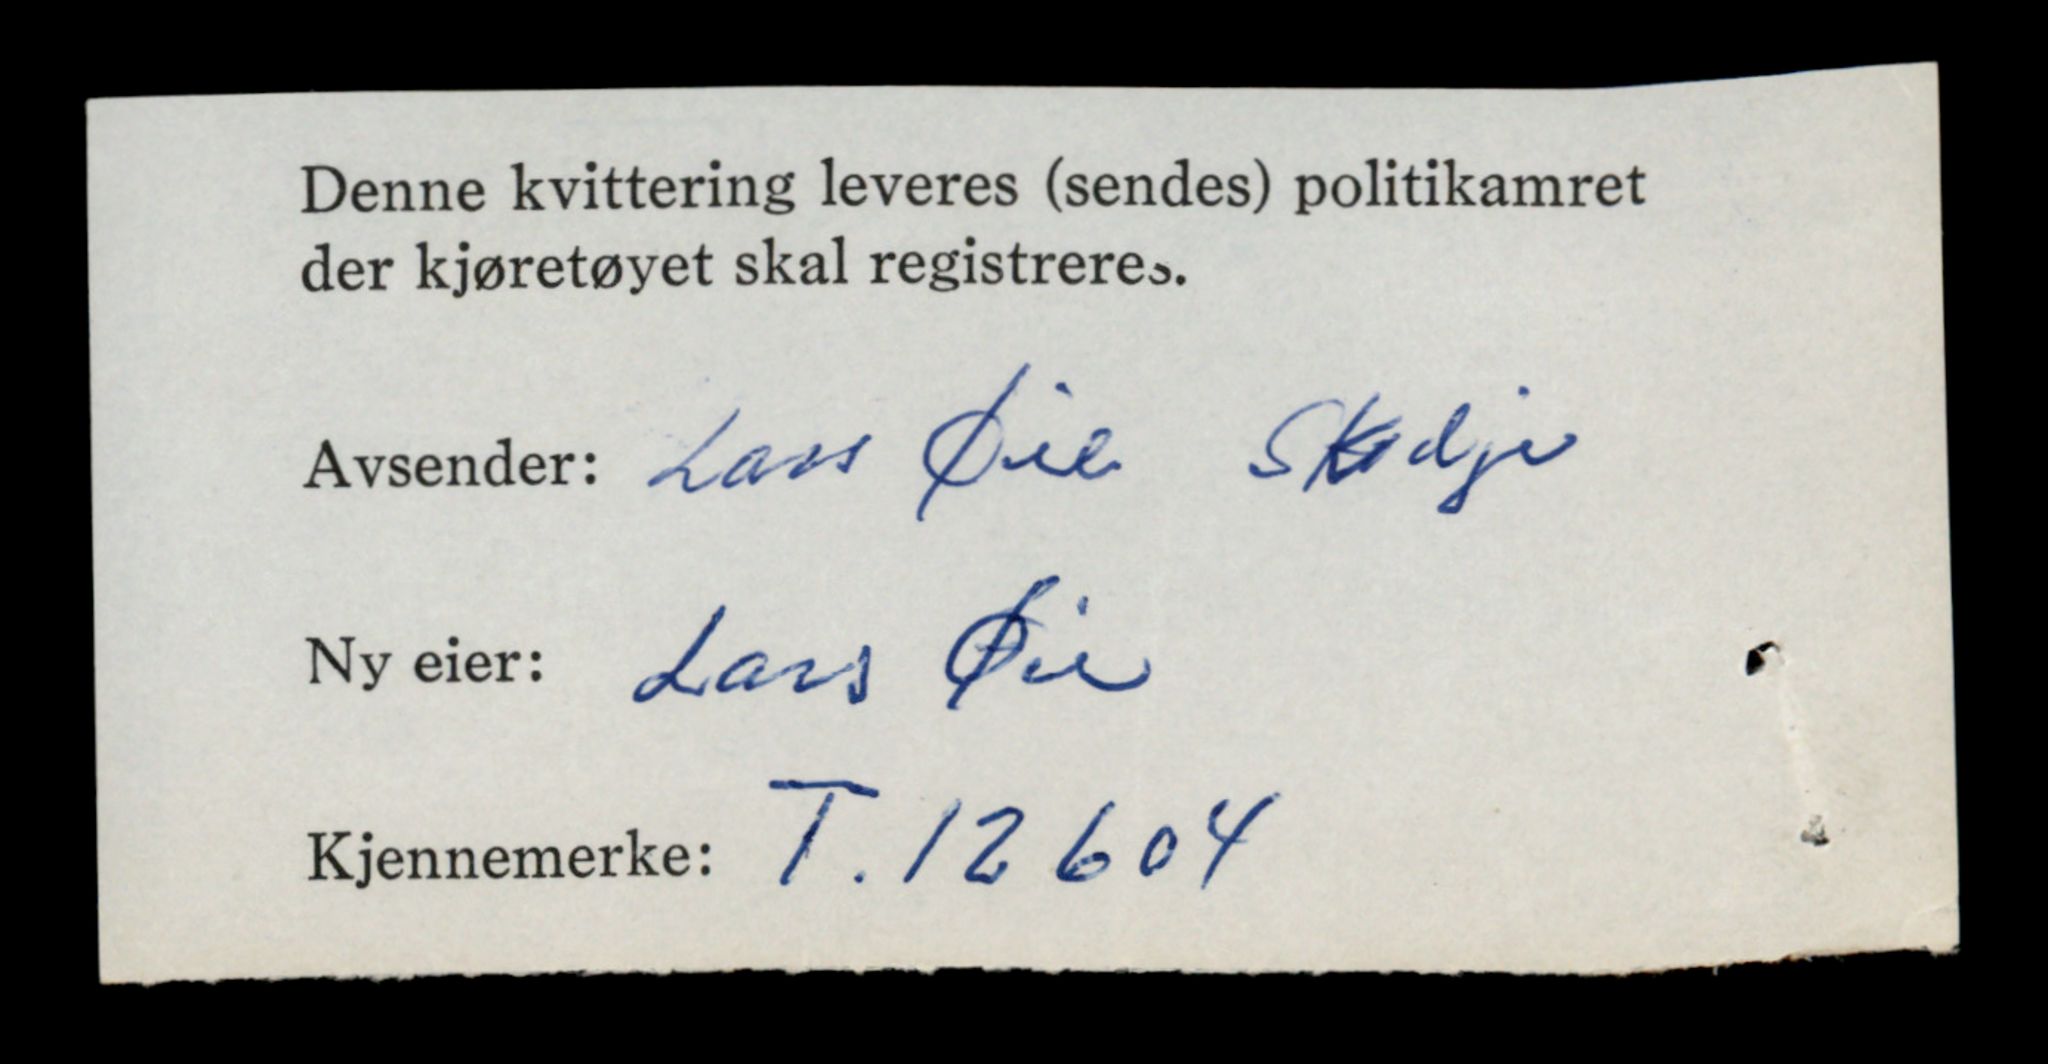 Denne kvittering leveres (sendes) politikamret
der kjøretøyet skal registreres.
Avsender: Lars Øie Skodje
Ny eier: Lars Øie
Kjennemerke: T. 12604